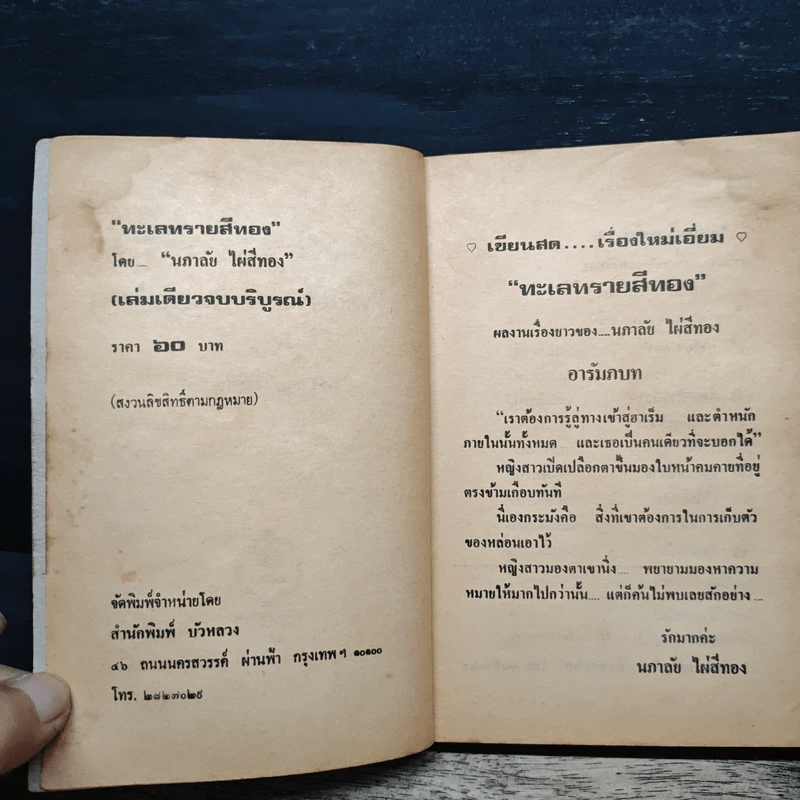 “ทะเลทรายสีทอง”
โดย.... “นภาลัย ไผ่สีทอง”
(เล่มเดียวจบบริบูรณ์)
ราคา ๖๐ บาท
(สงวนลิขสิทธิ์ตามกฎหมาย)
จัดพิมพ์จำหน่ายโดย
สำนักพิมพ์ บัวหลวง
๔๖ ถนนนครสวรรค์ ผ่านฟ้า กรุงเทพฯ ๑๐๑๐๐
โทร. ๒๘๒๗๐๒๙
♡ เขียนสด....เรื่องใหม่เอี่ยม ♡
“ทะเลทรายสีทอง”
ผลงานเรื่องยาวของ....นภาลัย ไผ่สีทอง
อารัมภบท
“เราต้องการรู้ลู่ทางเข้าสู่ฮาเร็ม และตำหนัก
ภายในนั้นทั้งหมด และเธอเป็นคนเดียวที่จะบอกได้”
หญิงสาวเปิดเปลือกตาขึ้นมองใบหน้าคมคายที่อยู่
ตรงข้ามเกือบทันที
นี่เองกระมังคือ สิ่งที่เขาต้องการในการเก็บตัว
ของหล่อนเอาไว้
หญิงสาวมองตาเขานิ่ง.... พยายามมองหาความ
หมายให้มากไปกว่านั้น.... แต่ก็ค้นไม่พบเลยสักอย่าง...
รักมากค่ะ
นภาลัย ไผ่สีทอง